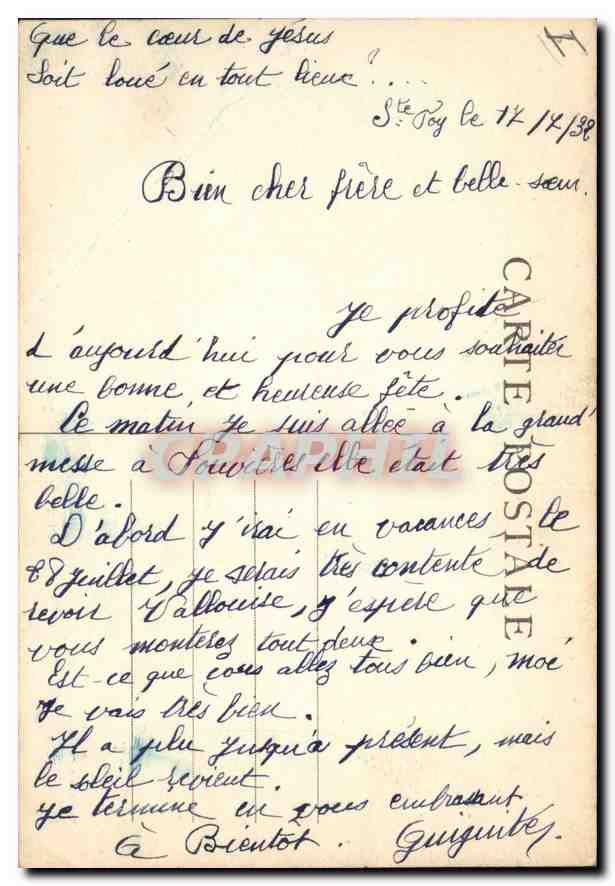 Que le cœur de Jésus
Soit loué en tout lieux ? ....
I
Ste Foy le 17/7/38
Bien cher frère et belle-sœur.
Je profite
d'aujourd'hui pour vous souhaiter
une bonne et heureuse fête.
Ce matin je suis allée à la grand'
messe à elle etait très
belle.
D'abord j'irai en vacances le
28 juillet, je serais très contente de
revoir Vallouise, j'espère que
vous monterez tout deux.
Est-ce que vous allez tous bien, moé
Je vais très bien.
Il a plu jusqu'à présent, mais
le soleil revient.
Je termine en vous embrasant
à Bientot.
CARTE POSTALE